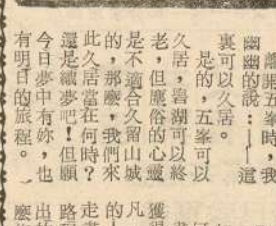 離開五峯時，我
幽幽的說：——這
裏可以久居。
是的，五峯可以
久居，碧湖可以終
老，但塵俗的心靈
是不適合久留山城
的，那麼，我們來
此久居當在何時？
還是織夢吧！但願
今日夢中有妳，也
有明日的旅程。
獲
的凡
走
路程
出的
麼